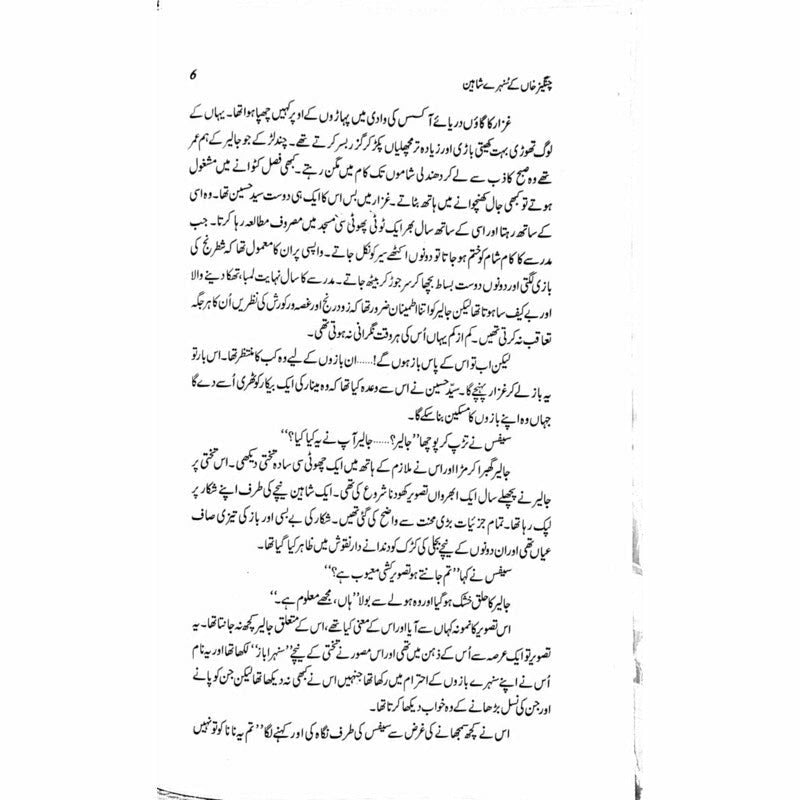 چنگیز خاں کے سنہرے شاہین
6
غزار کا گاؤں دریائے آکسس کی وادی میں پہاڑوں کے اوپر کہیں چھپا ہوا تھا۔ یہاں کے
لوگ تھوڑی بہت کھیتی باڑی اور زیادہ تر مچھلیاں پکڑ کر گزر بسر کرتے تھے۔ چند لڑکے جو جالیر کے ہم عمر
تھے وہ صبح کاذب سے لے کر دھندلی شاموں تک کام میں مگن رہتے۔ کبھی فصل کٹوانے میں مشغول
ہوتے تو کبھی جال کھنچوانے میں ہاتھ بٹاتے۔ غزار میں بس اس کا ایک ہی دوست سید حسین تھا۔ وہ اسی
کے ساتھ رہتا اور اسی کے ساتھ سال بھر ایک ٹوٹی پھوٹی سی مسجد میں مصروف مطالعہ رہا کرتا۔ جب
مدرسے کا کام شام کو ختم ہو جاتا تو دونوں اکٹھے سیر کو نکل جاتے۔ واپسی پر ان کا معمول تھا کہ شطرنج کی
بازی لگتی اور دونوں دوست بساط بچھا کر سر جوڑ کر بیٹھ جاتے۔ مدرسے کا سال نہایت لمبا، تھکا دینے والا
اور بے کیف سا ہوتا تھا لیکن جالیر کو اتنا اطمینان ضرور تھا کہ زود رنج اور غصہ ور کورش کی نظریں اُن کا ہر جگہ
تعاقب نہ کرتی تھیں۔ کم از کم یہاں اُس کی ہر وقت نگرانی نہ ہوتی تھی۔
لیکن اب تو اس کے پاس باز ہوں گے!......ان بازوں کے لیے وہ کب کا منتظر تھا۔ اس بار تو
یہ باز لے کر غزار پہنچے گا۔ سیّد حسین نے اس سے وعدہ کیا تھا کہ وہ مینار کی ایک بیکار کوٹھری اُسے دے گا
جہاں وہ اپنے بازوں کا مسکن بنا سکے گا۔
سیفس نے تڑپ کر پوچھا ”جالیر؟......جالیر آپ نے یہ کیا کیا؟“
جالیر گھبرا کر مڑا اور اس نے ملازم کے ہاتھ میں ایک چھوٹی سی سادہ تختی دیکھی۔ اس تختی پر
جالیر نے پچھلے سال ایک ابھرواں تصویر کھودنا شروع کی تھی۔ ایک شاہین نیچے کی طرف اپنے شکار پر
لپک رہا تھا۔ تمام جزئیات بڑی محنت سے واضح کی گئی تھیں۔ شکار کی بے بسی اور باز کی تیزی صاف
عیاں تھی اور ان دونوں کے نیچے بجلی کی کڑک کو دندانے دار نقوش میں ظاہر کیا گیا تھا۔
سیفس نے کہا ”تم جانتے ہو تصویر کشی معیوب ہے؟“
جالیر کا حلق خشک ہو گیا اور وہ ہولے سے بولا ”ہاں، مجھے معلوم ہے۔“
اس تصویر کا نمونہ کہاں سے آیا اور اس کے معنی کیا تھے، اس کے متعلق جالیر کچھ نہ جانتا تھا۔ یہ
تصویر تو ایک عرصہ سے اُس کے ذہن میں تھی اور اس مصور نے تختی کے نیچے ”سنہرا باز“ لکھا تھا اور یہ نام
اُس نے اپنے سنہرے بازوں کے احترام میں رکھا تھا جنہیں اس نے کبھی نہ دیکھا تھا لیکن جن کو پانے
اور جن کی نسل بڑھانے کے وہ خواب دیکھا کرتا تھا۔
اس نے کچھ سمجھانے کی غرض سے سیفس کی طرف نگاہ کی اور کہنے لگا ”تم یہ نانا کو تو نہیں